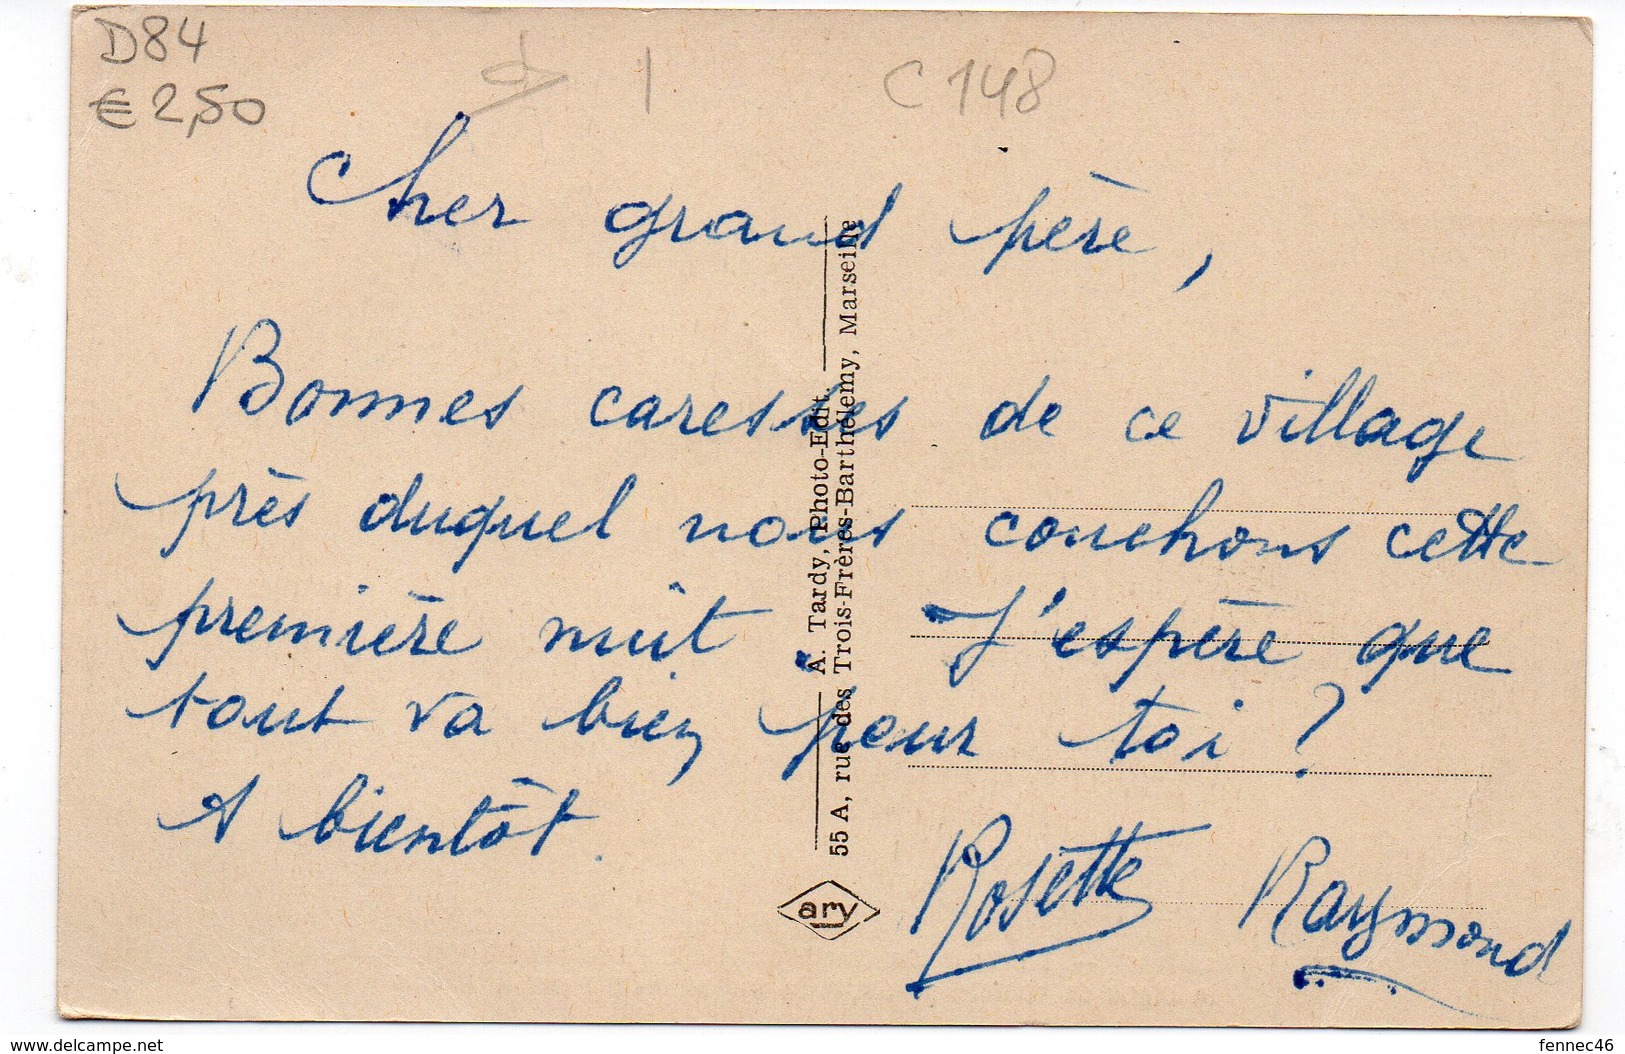 D84
€ 2,50
C 148
Cher grand père,
Bonnes caresses de ce village
près duquel nous couchons cette
première nuit. J'espère que
tout va bien pour toi ?
A bientôt.
Rosette Raymond
A. Tardy, Photo-Edit.
55 A, rue des Trois-Frères-Barthélemy, Marseille
www.delcampe.net
fennec46